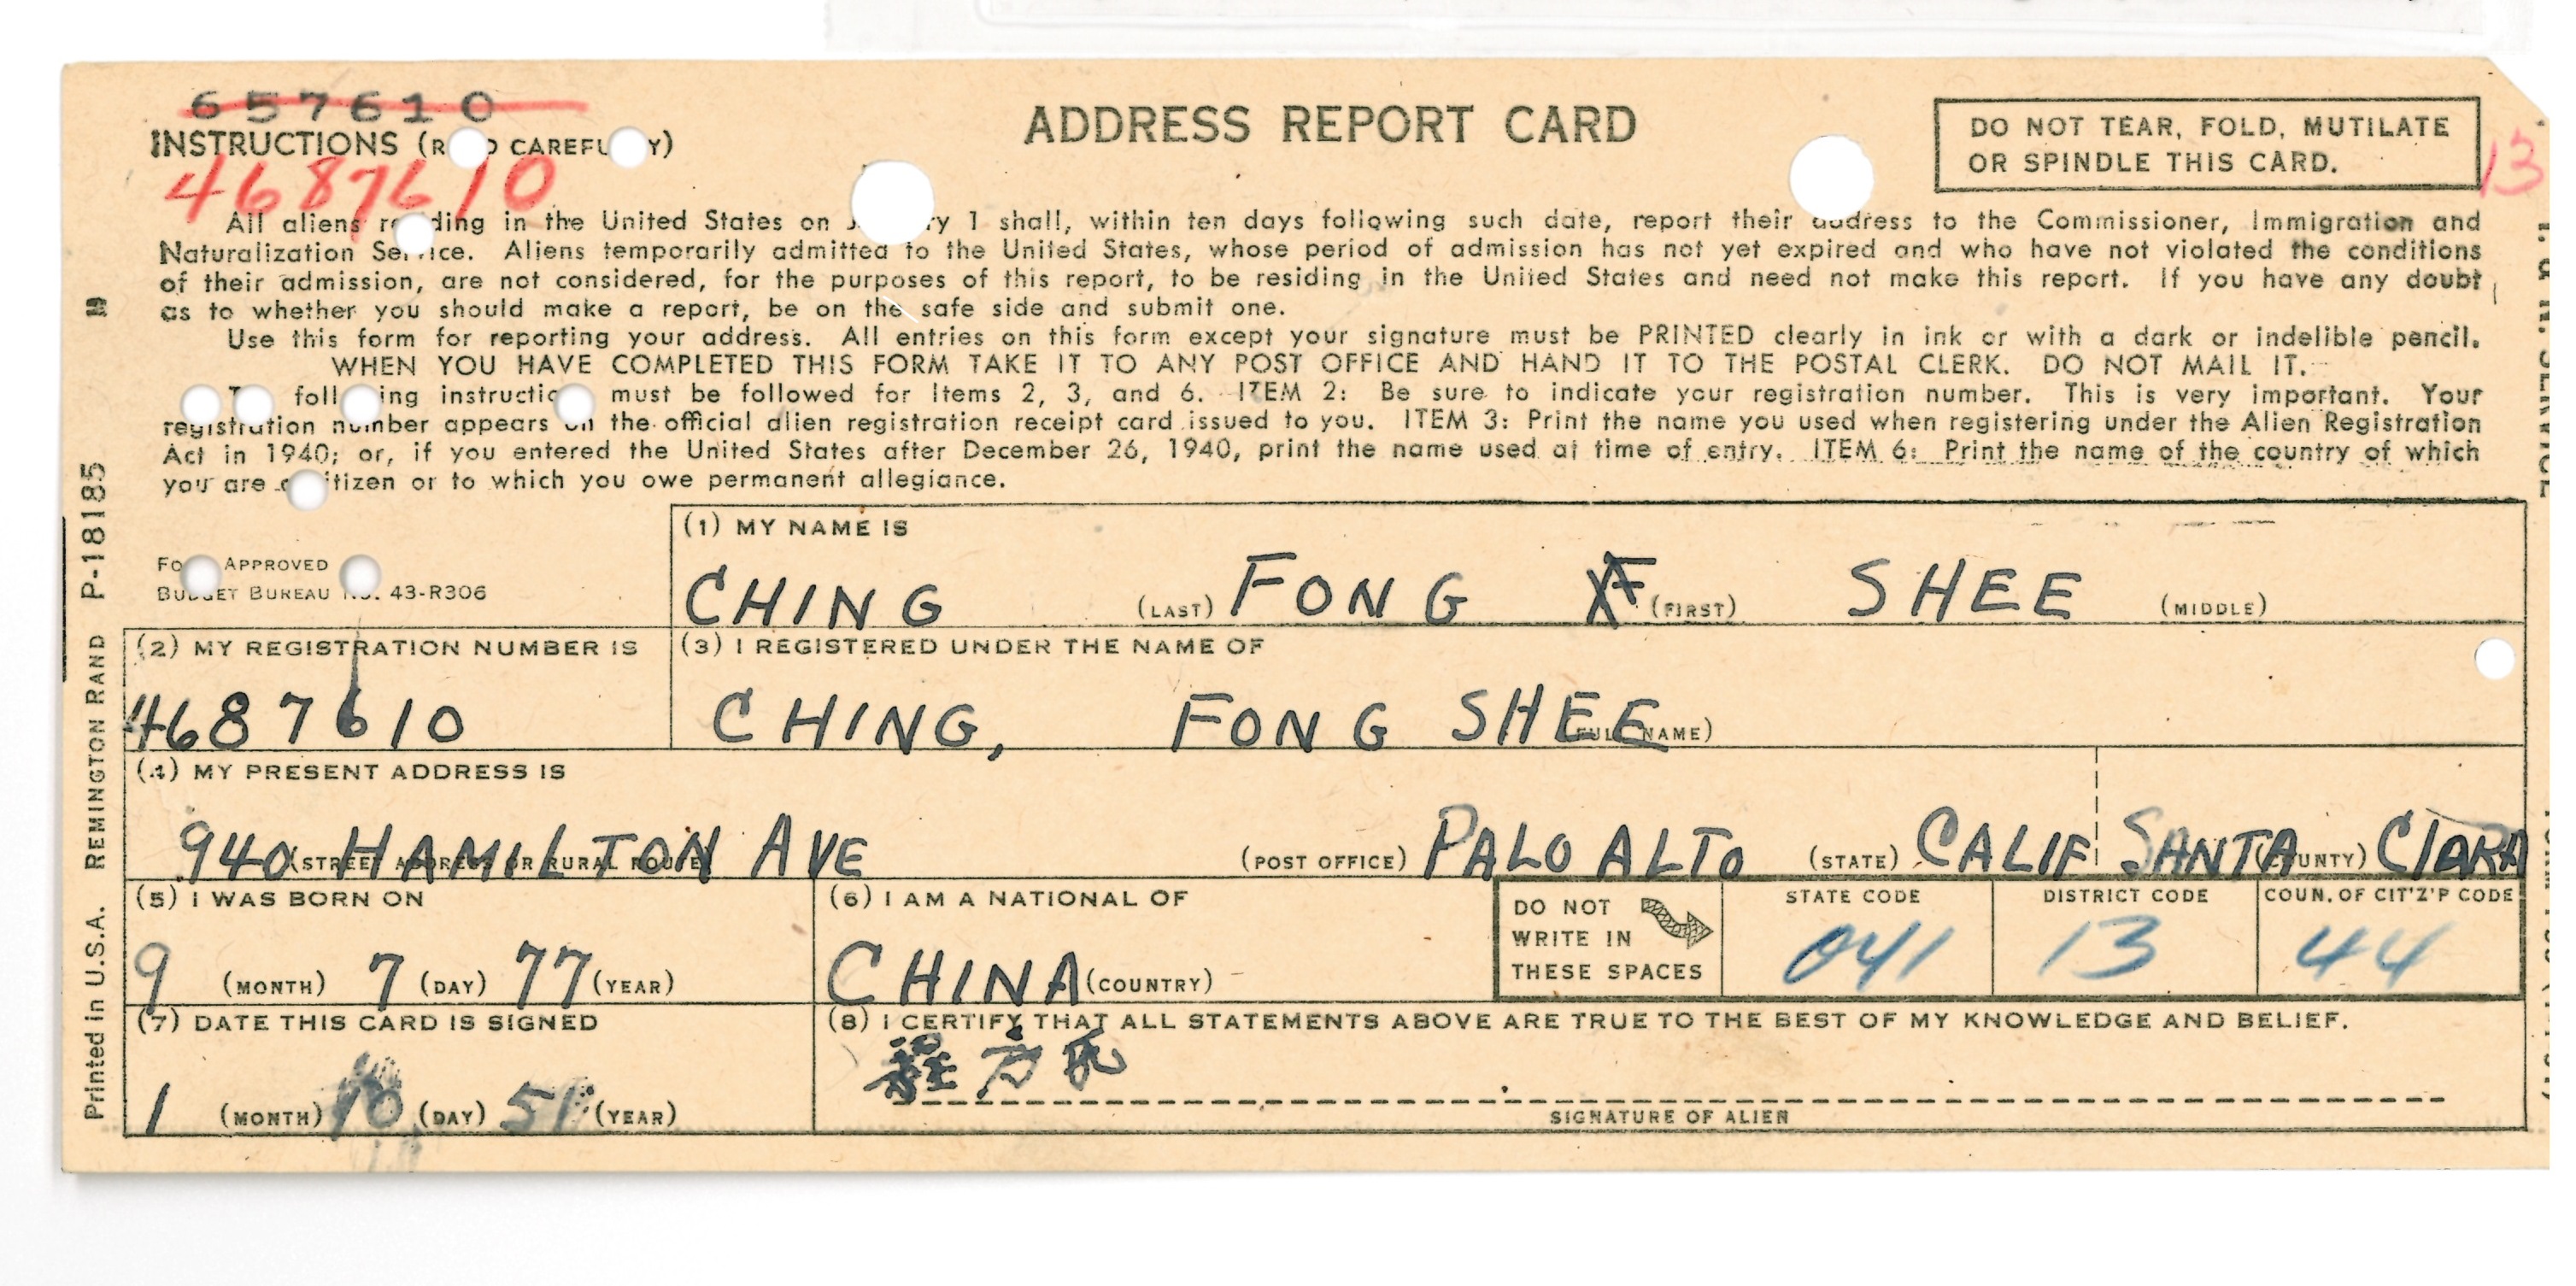 657610
ADDRESS REPORT CARD
DO NOT TEAR, FOLD, MUTILATE
OR SPINDLE THIS CARD.
13
INSTRUCTIONS (R D CAREFU Y)
4687610
All aliens re ding in the United States on J ry 1 shall, within ten days following such date, report their address to the Commissioner, Immigration and
Naturalization Service. Aliens temporarily admitted to the United States, whose period of admission has not yet expired and who have not violated the conditions
of their admission, are not considered, for the purposes of this report, to be residing in the United States and need not make this report. If you have any doubt
as to whether you should make a report, be on the safe side and submit one.
Use this form for reporting your address. All entries on this form except your signature must be PRINTED clearly in ink or with a dark or indelible pencil.
WHEN YOU HAVE COMPLETED THIS FORM TAKE IT TO ANY POST OFFICE AND HAND IT TO THE POSTAL CLERK. DO NOT MAIL IT.
T foll ing instructio must be followed for Items 2, 3, and 6. ITEM 2: Be sure to indicate your registration number. This is very important. Your
registration number appears on the official alien registration receipt card issued to you. ITEM 3: Print the name you used when registering under the Alien Registration
Act in 1940; or, if you entered the United States after December 26, 1940, print the name used at time of entry. ITEM 6: Print the name of the country of which
you are a citizen or to which you owe permanent allegiance.
FO APPROVED
BUDGET BUREAU NO. 43-R306
(1) MY NAME IS
CHING (LAST) FONG (FIRST) SHEE (MIDDLE)
(2) MY REGISTRATION NUMBER IS
4687610
(3) I REGISTERED UNDER THE NAME OF
CHING, FONG SHEE (FULL NAME)
(4) MY PRESENT ADDRESS IS
940 HAMILTON AVE (STREET ADDRESS OR RURAL ROUTE) (POST OFFICE) PALO ALTO (STATE) CALIF SANTA CLARA (COUNTY)
(5) I WAS BORN ON
9 (MONTH) 7 (DAY) 77 (YEAR)
(6) I AM A NATIONAL OF
CHINA (COUNTRY)
DO NOT
WRITE IN
THESE SPACES
STATE CODE
041
DISTRICT CODE
13
COUN. OF CIT'Z'P CODE
44
(7) DATE THIS CARD IS SIGNED
1 (MONTH) 10 (DAY) 51 (YEAR)
(8) I CERTIFY THAT ALL STATEMENTS ABOVE ARE TRUE TO THE BEST OF MY KNOWLEDGE AND BELIEF.
程方氏
SIGNATURE OF ALIEN
Printed in U.S.A. REMINGTON RAND P-18185